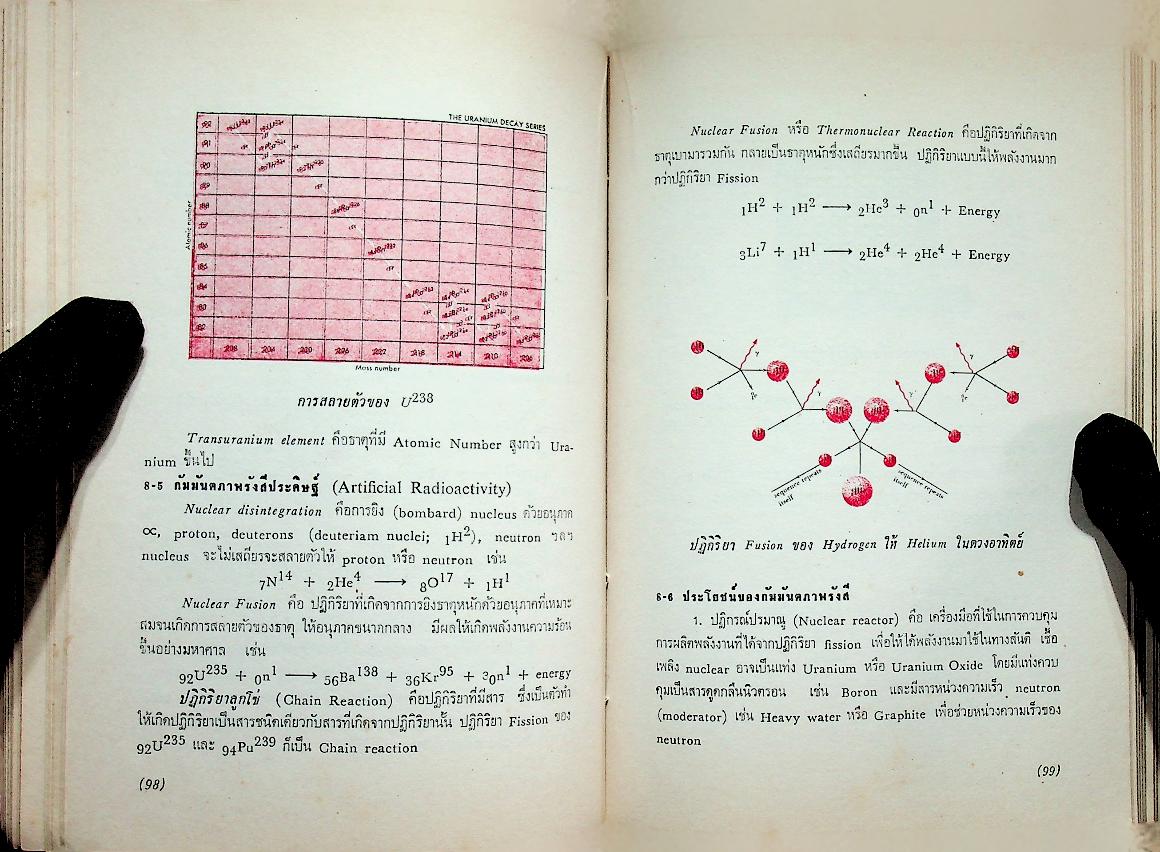 THE URANIUM DECAY SERIES
Atomic number
Mass number
การสลายตัวของ U238
Transuranium element คือธาตุที่มี Atomic Number สูงกว่า Ura-
nium ขึ้นไป
8-5 กัมมันตภาพรังสีประดิษฐ์ (Artificial Radioactivity)
Nuclear disintegration คือการยิง (bombard) nucleus ด้วยอนุภาค
∝, proton, deuterons (deuteriam nuclei; ₁H²), neutron ฯลฯ
nucleus จะไม่เสถียรจะสลายตัวให้ proton หรือ neutron เช่น
₇N¹⁴ + ₂He⁴ ⟶ ₈O¹⁷ + ₁H¹
Nuclear Fusion คือ ปฏิกิริยาที่เกิดจากการยิงธาตุหนักด้วยอนุภาคที่เหมาะ
สมจนเกิดการสลายตัวของธาตุ ให้อนุภาคขนาดกลาง มีผลให้เกิดพลังงานความร้อน
ขึ้นอย่างมหาศาล เช่น
₉₂U²³⁵ + ₀n¹ ⟶ ₅₆Ba¹³⁸ + ₃₆Kr⁹⁵ + ³₀n¹ + energy
ปฏิกิริยาลูกโซ่ (Chain Reaction) คือปฏิกิริยาที่มีสาร ซึ่งเป็นตัวทำ
ให้เกิดปฏิกิริยาเป็นสารชนิดเดียวกับสารที่เกิดจากปฏิกิริยานั้น ปฏิกิริยา Fission ของ
₉₂U²³⁵ และ ₉₄Pu²³⁹ ก็เป็น Chain reaction
(98)
Nuclear Fusion หรือ Thermonuclear Reaction คือปฏิกิริยาที่เกิดจาก
ธาตุเบามารวมกัน กลายเป็นธาตุหนักซึ่งเสถียรมากขึ้น ปฏิกิริยาแบบนี้ให้พลังงานมาก
กว่าปฏิกิริยา Fission
₁H² + ₁H² ⟶ ₂He³ + ₀n¹ + Energy
₃Li⁷ + ₁H¹ ⟶ ₂He⁴ + ₂He⁴ + Energy
sequence repeats
itself
sequence repeats
itself
ปฏิกิริยา Fusion ของ Hydrogen ให้ Helium ในดวงอาทิตย์
8-6 ประโยชน์ของกัมมันตภาพรังสี
1. ปฏิกรณ์ปรมาณู (Nuclear reactor) คือ เครื่องมือที่ใช้ในการควบคุม
การผลิตพลังงานที่ได้จากปฏิกิริยา fission เพื่อให้ได้พลังงานมาใช้ในทางสันติ เชื้อ
เพลิง nuclear อาจเป็นแท่ง Uranium หรือ Uranium Oxide โดยมีแท่งควบ
คุมเป็นสารดูดกลืนนิวตรอน เช่น Boron และมีสารหน่วงความเร็ว neutron
(moderator) เช่น Heavy water หรือ Graphite เพื่อช่วยหน่วงความเร็วของ
neutron
(99)